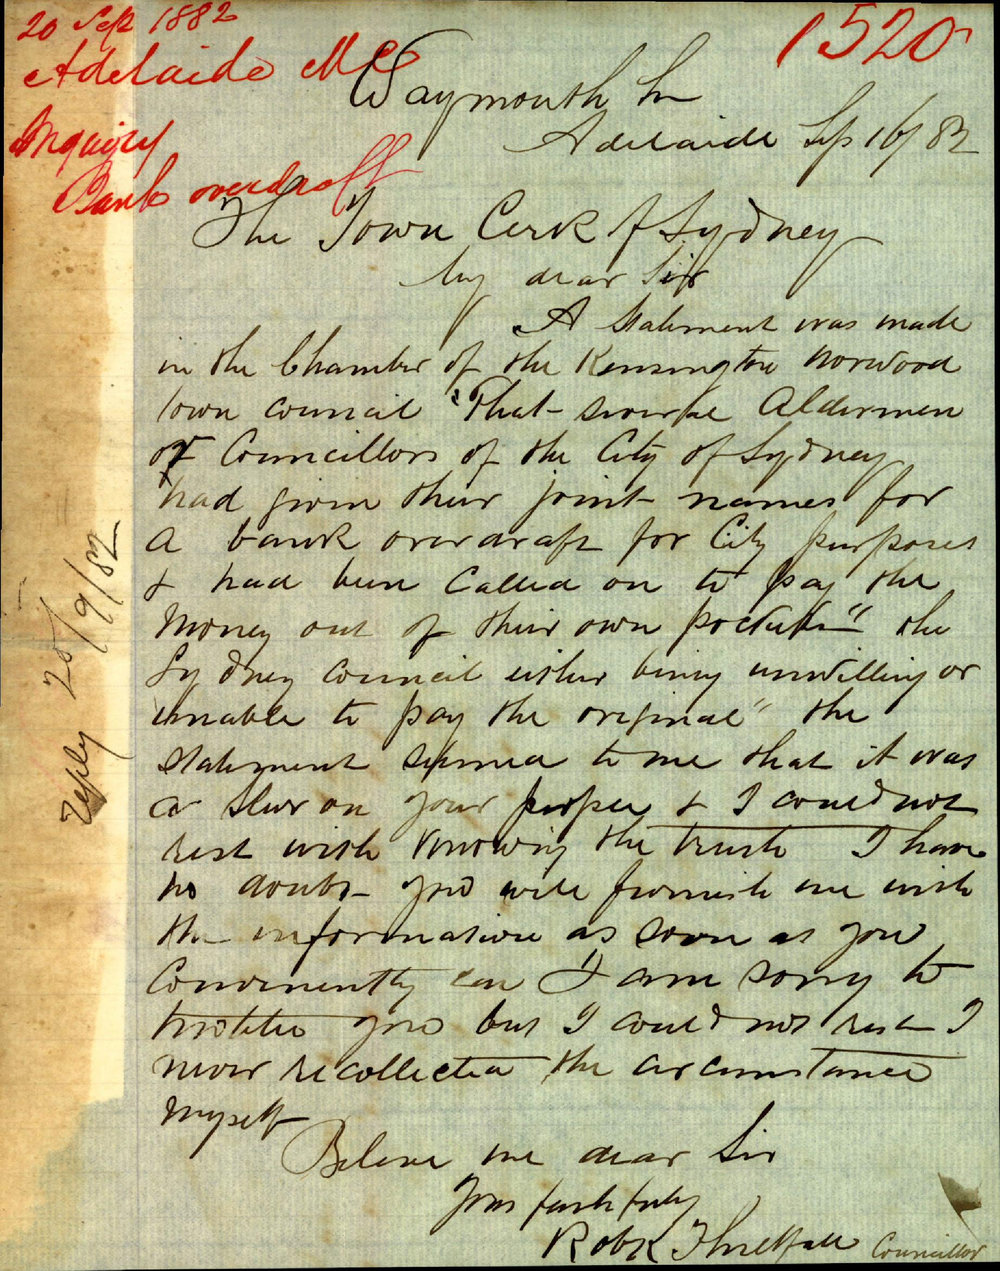 20 Sep 1882
1520
Adelaide M C
Inquiry
Bank overdraft
Waymouth St
Adelaide Sep 16/82
The Town Clerk of Sydney
My dear Sir
A Statement was made
in the Chamber of the Kensington Norwood
town council "That several Aldermen
or Councillors of the City of Sydney
had given their joint names for
a bank overdraft for City purposes
& had been called on to pay the
money out of their own pockets" the
Sydney council either being unwilling or
unable to pay the original" the
statement seemed to me that it was
a slur on your people & I could not
rest with knowing the truth I have
no doubt you will furnish me with
the information as soon as you
conveniently can I am sorry to
trouble you but I could not rest I
never recollected the circumstance
myself
Believe me dear Sir
Yours faithfully
Robt Threlfall Councillor
reply 20/9/82